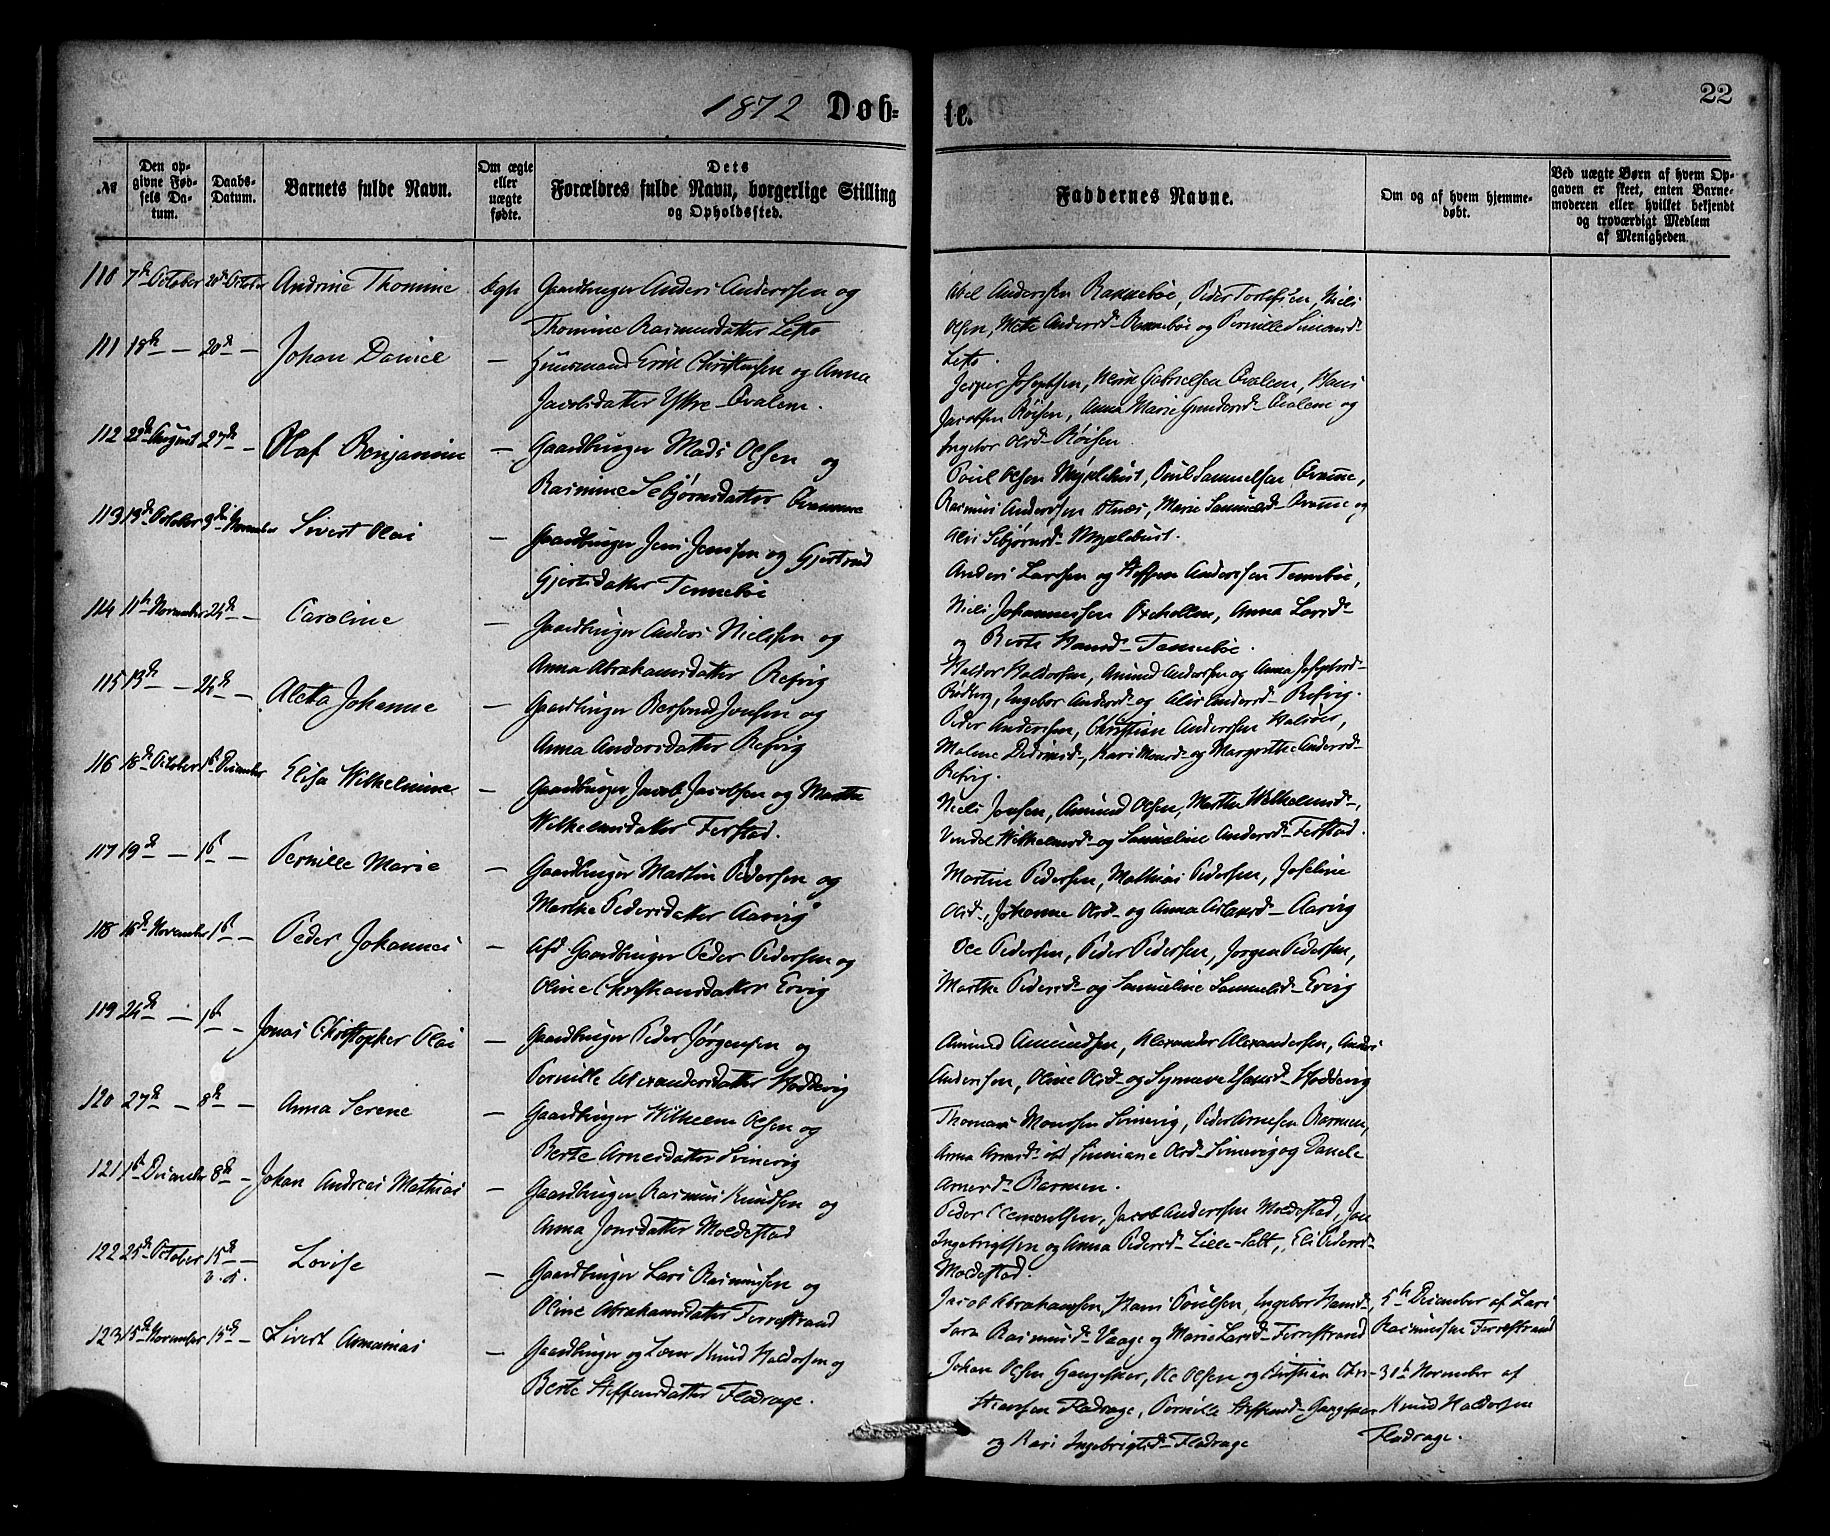 1872 Døb-
te.
22
№
Den op-
givne Fød-
sels Da-
tum.
Daabs-
Datum.
Barnets fulde Navn.
Om ægte
eller
uægte
fødte.
Dets
Forældres fulde Navn, borgerlige Stilling
og Opholdssted.
Faddernes Navne.
Om og af hvem hjemme-
døbt.
Ved uægte Børn af hvem Op-
gaven er skeet, enten Barne-
moderen eller hvilket bekjendt
og troværdigt Medlem
af Menigheden.
110 7de October 20de October Andrine Thomine ægte Gaardbruger Anders Anderssen og
Thomine Rasmusdatter Lefto
Abel Anderssen Rannebøe, Peder Tollefsen, Niels
Olsen, Mette Andersd- Rannebøe og Pernille Simonsd-
Lefto.
111 18de — 20de — Johan Daniel — Huusmand Erik Christensen og Anna
Jacobsdatter Ytre-Qvalem.
Jesper Josephsen, Gabrielsen Qvalem, Hans
Jacobsen Røisen, Anna Marie Gundersd- Qvalem og
Ingebor Olsd- Røisen.
112 22de August 27de — Olaf Benjamin — Gaardbruger Mads Olsen og
Rasmine Sebjørnsdatter Qvamme
Poul Olsen Myklebust, Poul Samuelsen Qvamme,
Rasmus Anderssen Hnæs, Marie Samuelsd- Qvamme og
Alis Sebjørnsd- Myklebust.
113 19de October 3de November Sivert Olai — Gaardbruger Jens Jenssen og Gjertrud
Gjertsdatter Tennebøe
Anders Larssen og Steffen Anderssen Tennebøe,
Niels Johannessen Oxeholm, Anna Larsd-
og Berte Hansd- Tennebøe.
114 11te November 24de — Caroline — Gaardbruger Anders Nielssen og
Anna Abrahamsdatter Refvig
Halder Haldorsen, Amund Anderssen og Anna Josephsd-
Rødberg, Ingebor Andersd- og Alis Andersd- Refvig.
115 13de — 24de — Aletta Johanne — Gaardbruger Bersvend Jonsen og
Anna Andersdatter Refvig
Peder Anderssen, Christian Anderssen Halsøer,
Malene Didriksd-, Kari Monsd- og Margrethe Andersd-
Refvig.
116 18de October 1ste December Elisa Wilhelmine — Gaardbruger Jacob Jacobsen og Marthe
Wilhelmsdatter Ferstad.
Niels Jonsen, Amund Olsen, Marthe Wilhelmsd-,
Vendel Wilhelmsd- og Samueline Andersd- Ferstad.
117 19de — 1ste — Pernille Marie — Gaardbruger Martin Pedersen og
Marthe Pedersdatter Aarvig
Martin Pedersen, Mathias Pedersen, Joseline
Olsd-, Johanne Olsd- og Anna Aslaksd- Aarvig
118 16de November 1ste — Peder Johannes — Afd. Gaardbruger Peder Pedersen og
Oline Christiansdatter Ervig
Ole Pedersen, Peder Pedersen, Jørgen Pedersen,
Marthe Pedersd- og Samueline Samuelsd- Ervig
119 24de — 1ste — Jonas Christopher Olai — Gaardbruger Peder Jørgensen og
Pernille Alexandersdatter Hoddevig
Amund Amundsen, Alexander Alexandersen, Anders
Anderssen, Oline Olsd- og Synneve Hansd- Hoddevig
120 27de — 8de — Anna Serene — Gaardbruger Wilhelm Olsen og
Berte Arnesdatter Sinevig
Thomas Monssen Sinevig, Peder Arnesen Barmen,
Anna Arnesd- Olsd- Sinevig og Danele
Arnesd- Barmen.
121 1ste December 8de — Johan Andreas Mathias — Gaardbruger Rasmus Knudsen og
Anna Jonsdatter Moldestad
Peder Clemetsen, Jacob Anderssen Moldestad, Jon
Ingebrigtsen og Anna Pedersd- Lille-Salt, Eli Pedersd-
Moldestad.
122 25de October 15de — Lovise — Gaardbruger Lars Rasmussen og
3. S.
Oline Abrahamsdatter Ferrestrand
Jacob Abrahamsen, Hans Poulsen, Ingebor Hansd-,
Sara Rasmusd- Vaage og Marie Larsd- Ferrestrand
5te December af Lars
Rasmussen Ferrestrand
123 15de November 15de — Sivert Annanias — Gaardbruger og Læn. Knud Haldorsen og
Berte Steffensdatter Fladrage.
Johan Olsen Gangsøer, Ole Olsen og Christian Chri-
stensen Fladrage, Pernille Steffensd- Gangsøer
og Kari Ingebrigtsd- Fladrage
30te November af
Knud Haldorsen
Fladrage.